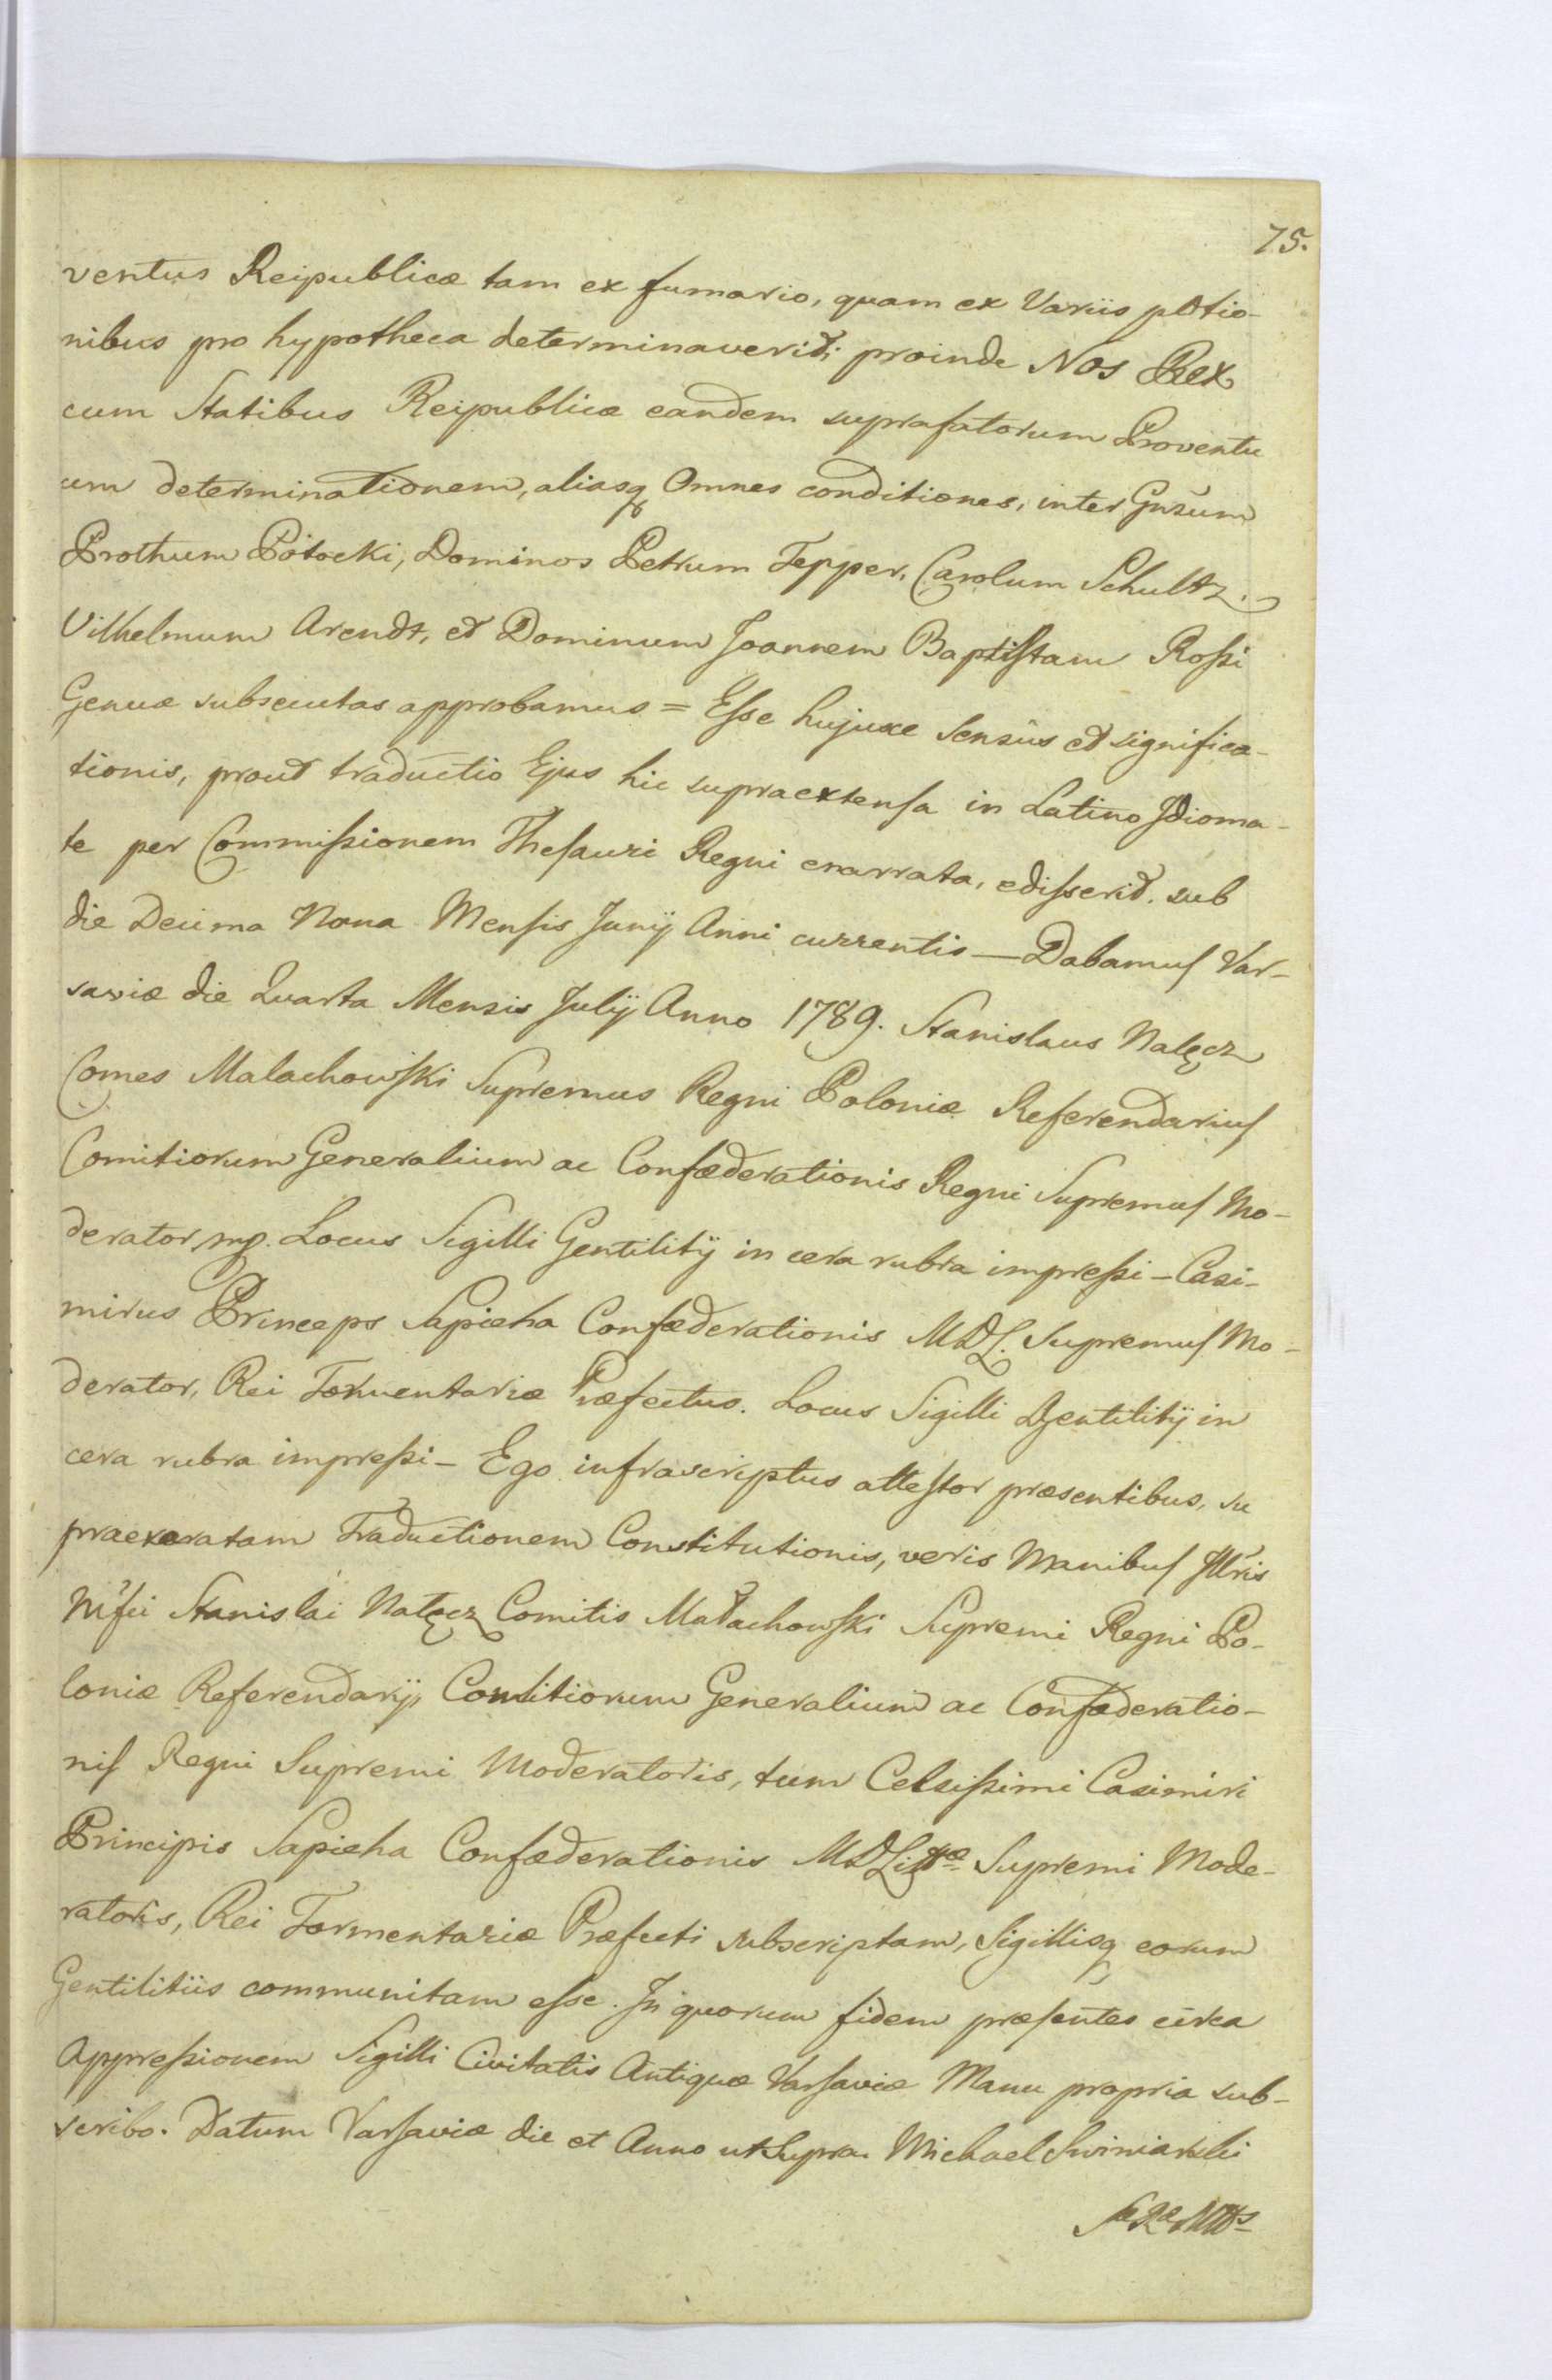 75.
ventus Reipublicæ tam ex fumario, quam ex Variis pltio-
nibus pro hypotheca determinaverit; proinde Nos Rex
cum Statibus Reipublicæ eandem suprafatorum Proventu
um determinationem, aliasq Omnes conditiones, inter Gnsum
Prothum Potocki, Dominos Petrum Tepper, Carolum Schultz.
Vilhelmum Arendt, et Dominum Joannem Baptistam Rossi
Genuæ subsecutas approbamus = Esse hujusce Sensûs et significa-
tionis, prout traductio Ejus hic supraextensa in Latino Idioma-
te per Commissionem Thesauri Regni enarrata, edisserit. sub
die Decima Nona Mensis Junij Anni currentis — Dabamus Var-
saviæ die Quarta Mensis Julij Anno 1789. Stanislaus Nalęcz
Comes Malachowski Supremus Regni Poloniæ Referendarius
Comitiorum Generalium ac Confæderationis Regni Supremus Mo-
derator mp. Locus Sigilli Gentilitij in cera rubra impressi – Casi-
mirus Princeps Sapieha Confæderationis MDL. Supremus Mo-
derator, Rei Tormentariæ Præfectus. Locus Sigilli Gentilitij in
cera rubra impressi – Ego infrascriptus attestor præsentibus, su
praexaratam Traductionem Constitutionis, veris Manibus Illris
Mfci Stanislai Nałęcz Comitis Małachowski Supremi Regni Po-
loniæ Referendarij, Comitiorum Generalium ac Confæderatio-
nis Regni Supremi Moderatoris, tum Celsissimi Casimiri
Principis Sapieha Confæderationis MDLittæ Supremi Mode-
ratoris, Rei Tormentariæ Præfecti subscriptam, Sigillisq eorum
Gentilitiis communitam esse. In quorum fidem præsentes circa
Appressionem Sigilli Civitatis Antiquæ Varsaviæ Manu propria sub-
scribo. Datum Varsaviæ die et Anno ut Supra. Michael Swiniarski